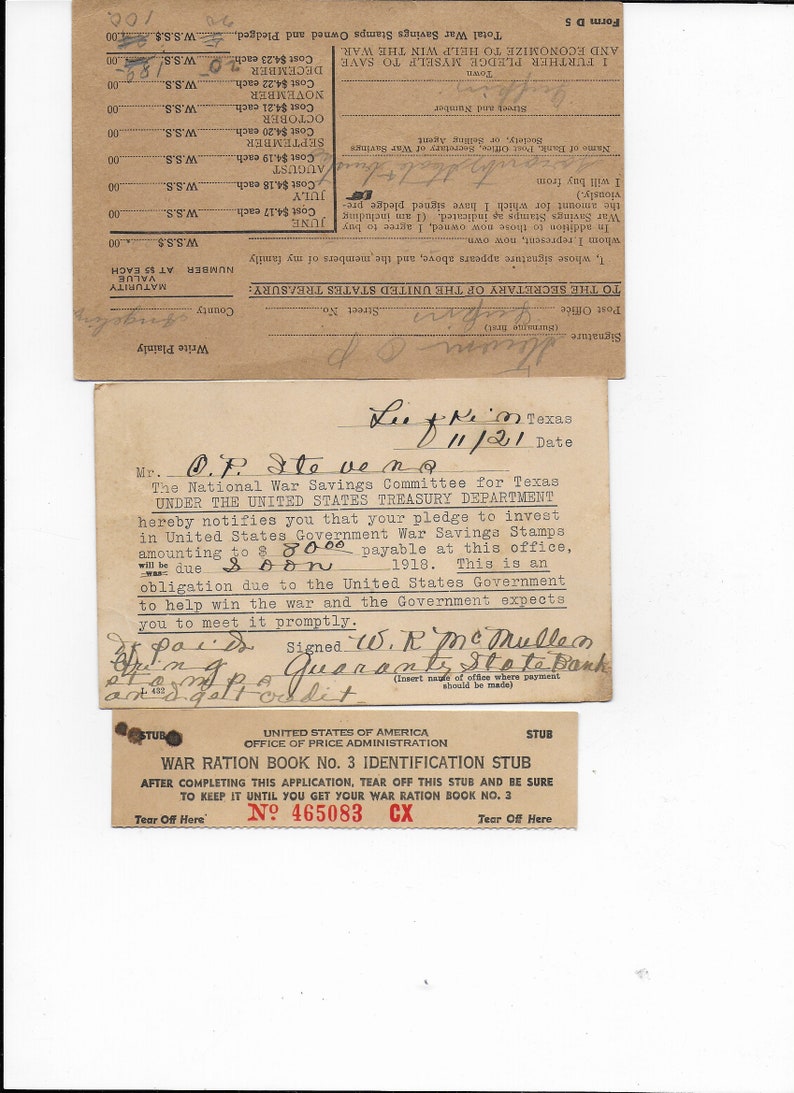 Write Plainly
Signature
(Surname first)
Post Office Lufkin Street No. County Angelina
TO THE SECRETARY OF THE UNITED STATES TREASURY:
MATURITY
VALUE
NUMBER AT $5 EACH
I, whose signature appears above, and the members of my family
whom I represent, now own W.S.S.$ .00
In addition to those now owned, I agree to buy
War Savings Stamps as indicated. (I am including
the amount for which I have signed pledge pre-
viously.)
I will buy from
Name of Bank, Post Office, Secretary of War Savings
Society, or Selling Agent
Street and Number
Lufkin
Town
I FURTHER PLEDGE MYSELF TO SAVE
AND ECONOMIZE TO HELP WIN THE WAR.
JUNE
Cost $4.17 each W.S.S. .00
JULY
Cost $4.18 each W.S.S. .00
AUGUST
Cost $4.19 each W.S.S. .00
SEPTEMBER
Cost $4.20 each W.S.S. .00
OCTOBER
Cost $4.21 each W.S.S. .00
NOVEMBER
Cost $4.22 each W.S.S. .00
DECEMBER
Cost $4.23 each W.S.S. .00
Total War Savings Stamps Owned and Pledged, W.S.S.$ .00
20 100
Form D 5
Lufkin Texas
11/21 Date
Mr. O. P. Stevens
The National War Savings Committee for Texas
UNDER THE UNITED STATES TREASURY DEPARTMENT
hereby notifies you that your pledge to invest
in United States Government War Savings Stamps
amounting to $ 80.00 payable at this office,
will be
was due Soon 1918. This is an
obligation due to the United States Government
to help win the war and the Government expects
you to meet it promptly.
If paid Signed W. R. McMullen
bring Guaranty State Bank
stamps (Insert name of office where payment
should be made)
and get credit
L 432
STUB UNITED STATES OF AMERICA STUB
OFFICE OF PRICE ADMINISTRATION
WAR RATION BOOK No. 3 IDENTIFICATION STUB
AFTER COMPLETING THIS APPLICATION, TEAR OFF THIS STUB AND BE SURE
TO KEEP IT UNTIL YOU GET YOUR WAR RATION BOOK NO. 3
Tear Off Here Nº 465083 CX Tear Off Here